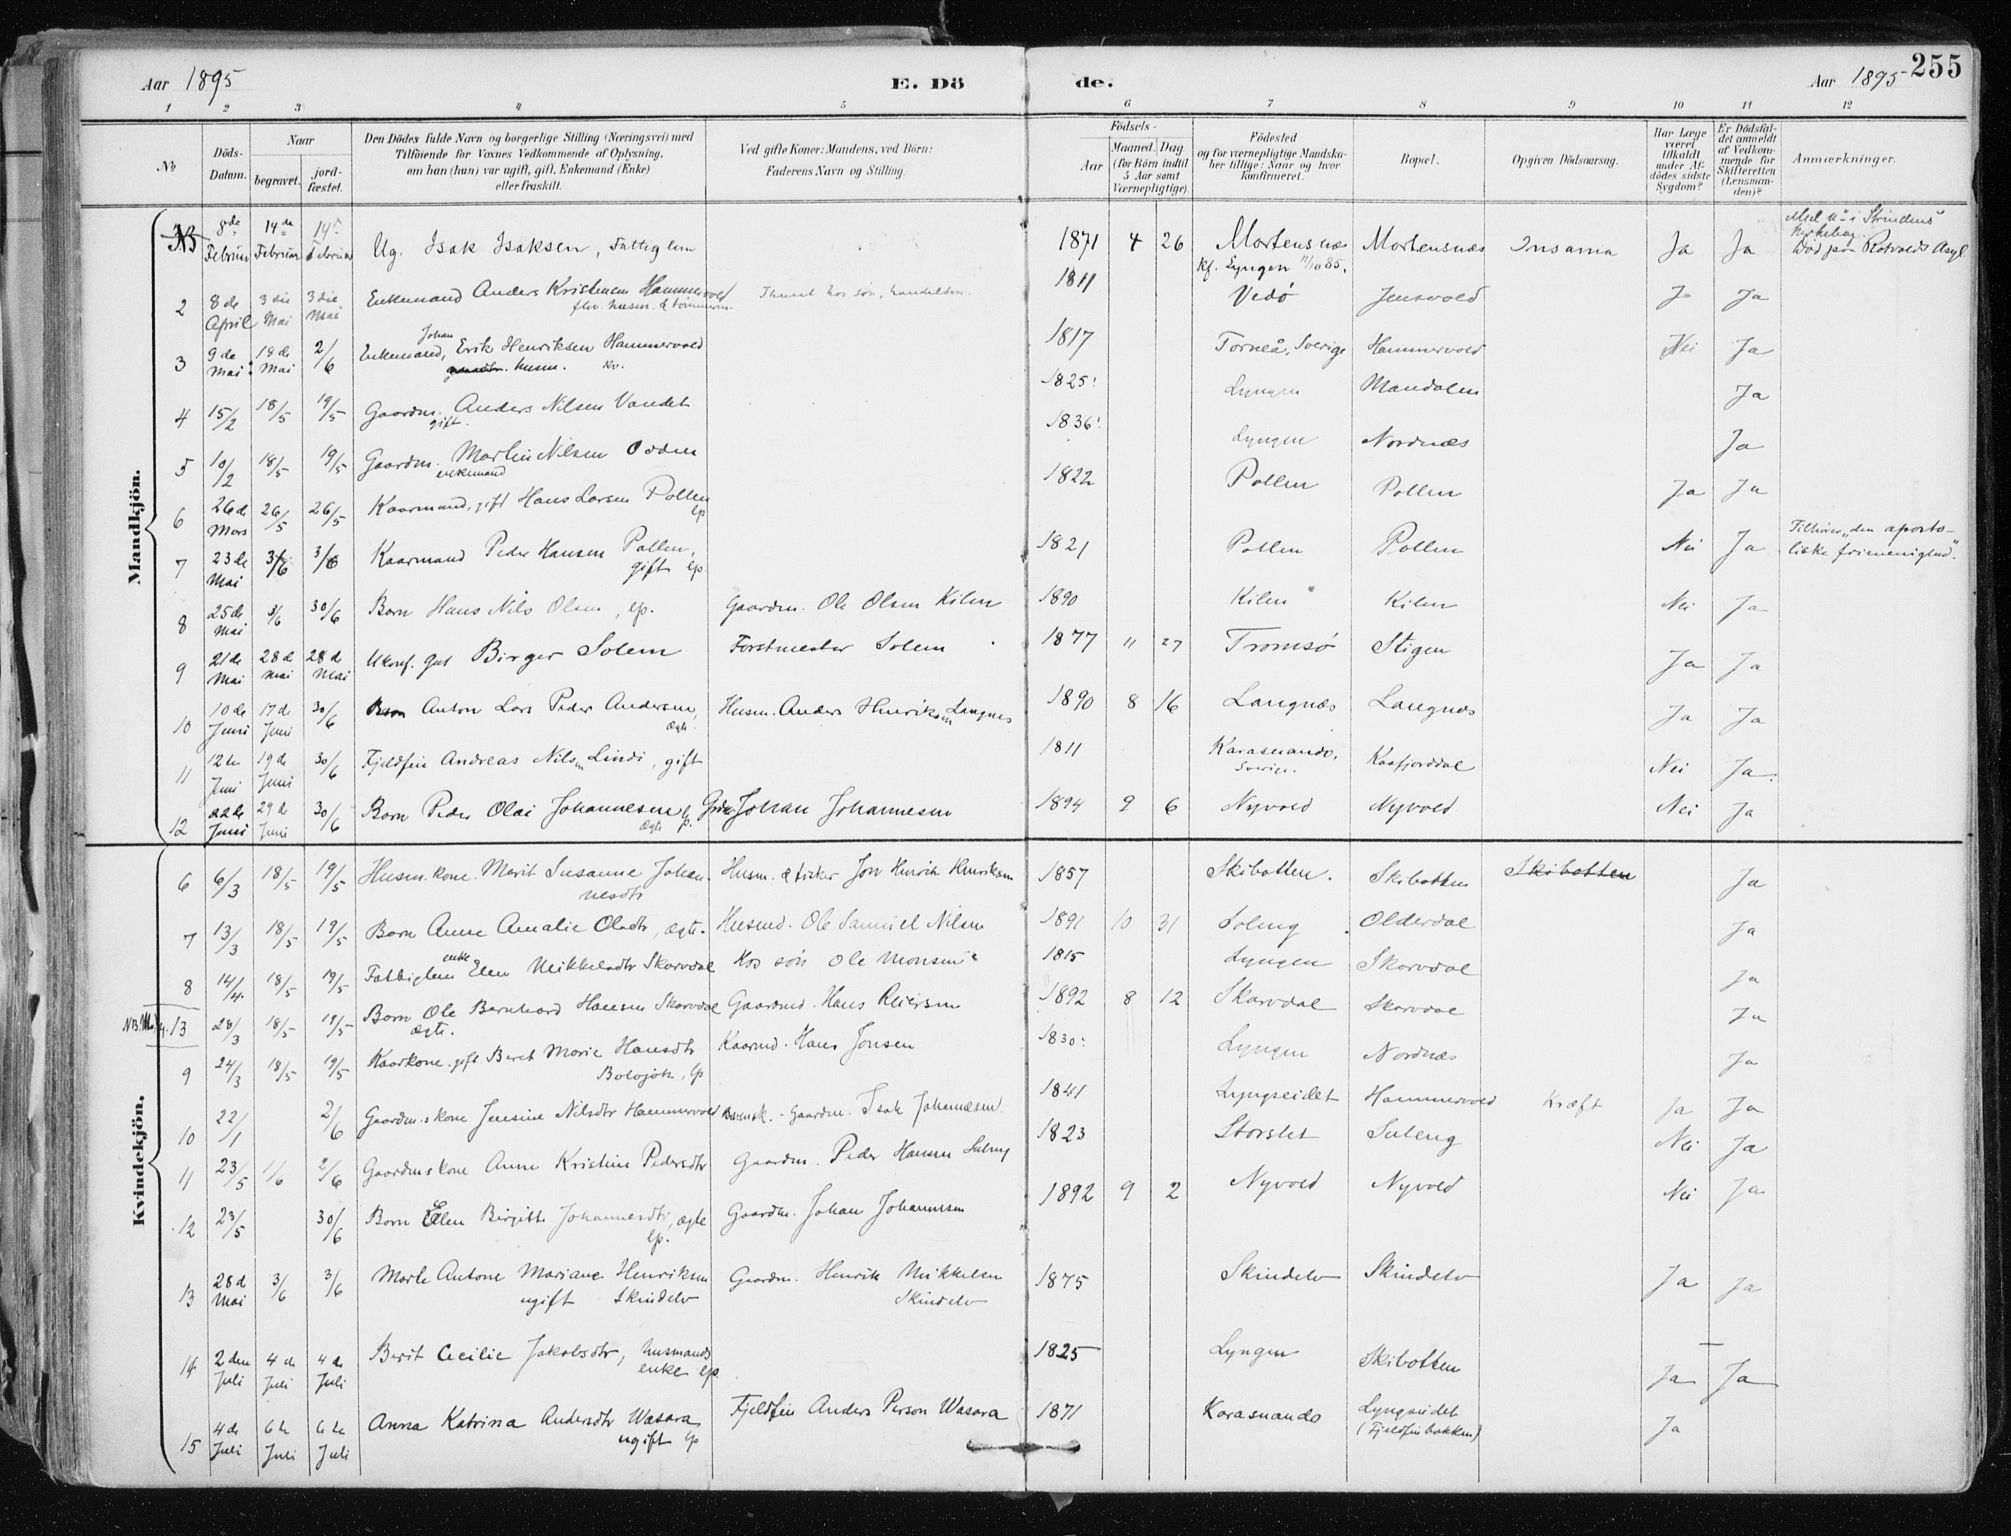 Aar 1895
E. Dö
de.
Aar 1895
255
1 2 3 4 5 6 7 8 9 10 11 12
№
Döds-Datum.
Naar
begravet.
jord-fæstet.
Den Dödes fulde Navn og borgerlige Stilling (Næringsvei) med
Tilföiende for Voxnes Vedkommende af Oplysning,
om han (hun) var ugift, gift, Enkemand (Enke)
eller fraskilt.
Ved gifte Koner: Mandens, ved Börn:
Faderens Navn og Stilling.
Födsels-
Aar
Maaned. Dag
(for Börn indtil
5 Aar samt
Værnepligtige).
Födested
og for værnepligtige Mandska-
ber tillige: Naar og hvor
konfirmeret.
Bopæl.
Opgiven Dödsaarsag.
Har Læge
været
tilkaldt
under Af-
dödes sidste
Sygdom?
Er Dödsfal-
det anmeldt
af Vedkom-
mende for
Skifteretten
(Lensman-
den)?
Anmærkninger.
Mandkjön.
8de Februar 14de Februar 14de Februar Ug. Isak Isaksen, Fattiglem 1871 4 26 Mortensnæs Mortensnæs Insania Ja Ja
kf. Lyngen 11/10 85.
2 8de April 3die Mai 3die Mai Enkemand Anders Kristensen Hammervold hos søn, 1811 Vedö Jensvold Ja Ja
3 9de Mai 19de Mai 2/6 Enkemand, Johan Erik Henriksen Hammervold 1817 Torneå, Sverige Hammervold Nei Ja
husm. kv.
4 15/2 18/5 19/5 Gaardm. Anders Nilsen Vandet 1825 Lyngen Mandalen Ja
gift.
5 10/2 18/5 19/5 Gaardm. Martin Nilsen Odden 1836 Lyngen Nordnæs Ja
enkemand
6 26de Mars 26/5 26/5 Kaarmand, gift Hans Larsen Pollen lp 1822 Pollen Pollen Ja Ja
7 23de Mai 3/6 3/6 Kaarmand Peder Hansen Pollen, 1821 Pollen Pollen Nei Ja Tilhører „den aposto-
gift lp. liske frimenighed".
8 25de Mai 3/6 30/6 Barn Hans Nils Olsen, lp. Gaardm. Ole Olsen Kilen 1890 Kilen Kilen Nei Ja
9 21de Mai 28de Mai 28de Mai Ukonf. gut Birger Solem Forstmester Solem 1877 11 27 Tromsö Stigen Ja Ja
10 10de Juni 17de Juni 30/6 Barn Anton Lars Peder Andersen, ægte Husm. Anders Henriksen Langnes 1890 8 16 Langnæs Langnæs Ja Ja
11 12te Juni 19de Juni 30/6 Fjeldfin Andreas Nilsen Lindi, gift 1811 Karasuando, Sverige. Kaafjorddal Nei Ja
12 22de Juni 29de Juni 30/6 Barn Peder Olai Johannesen ægte lp. Johan Johannesen 1894 9 6 Nyvold Nyvold Nei Ja
Kvindekjön.
6 6/3 18/5 19/5 Husm. kone. Marit Susanne Johan- Husm. & fisker Jon Henrik Henriksen 1857 Skibotten. Skibotten Skibotten Ja
nesdtr
7 13/3 18/5 19/5 Barn Anne Amalie Olsdtr, ægte. Husmd. Ole Samuel Nilsen 1891 10 31 Soleng Olderdal Ja
8 14/4 18/5 19/5 Fattiglem enke Elen Mikkelsdtr Skarvdal Hos søn Ole Monsen 1815 Lyngen Skarvdal Ja
NB. 13 28/3 18/5 19/5 Barn Ole Bernhard Hansen Skarvdal Gaardmd. Hans Reiersen 1892 8 12 Skarvdal Skarvdal Ja
ægte.
9 24/3 18/5 19/5 Kaarkone. gift Beret Marie Hansdtr Kaarmd. Hans Jonsen 1830 Lyngen Nordnæs Ja
10 22/1 2/6 Gaardm.skone Jensine Nilsdtr Hammervold Gaardm. Isak Johannesen 1841 Lyngseidet Hammervold Kræft Ja Ja
11 23/5 1/6 2/6 Gaardmskone Anne Kristine Pedersdtr Gaardm. Peder Hansen 1823 Storslet Suleng Nei Ja
12 23/5 30/6 Barn Elen Birgitte Johannesdtr, ægte Gaardm. Johan Johannesen 1892 9 2 Nyvold Nyvold Nei Ja
lp.
13 28de Mai 3/6 3/6 Marte Antone Mariane Henriksen Gaardm. Henrik Mikkelsen 1875 Skindelv Skindelv Ja Ja
ugift Skindelv Skindelv
14 2den Juli 4de Juli 4de Juli Berit Cecilie Jakobsdtr, husmands 1825 Lyngen Skibotten Ja Ja
enke lp.
15 4de Juli 6te Juli 6te Juli Anna Katrina Andersdtr Wasara Fjeldfin Anders Person Wasara 1871 Karasuando Lyngseidet Ja
ugift lp (Fjeldfinbakken)